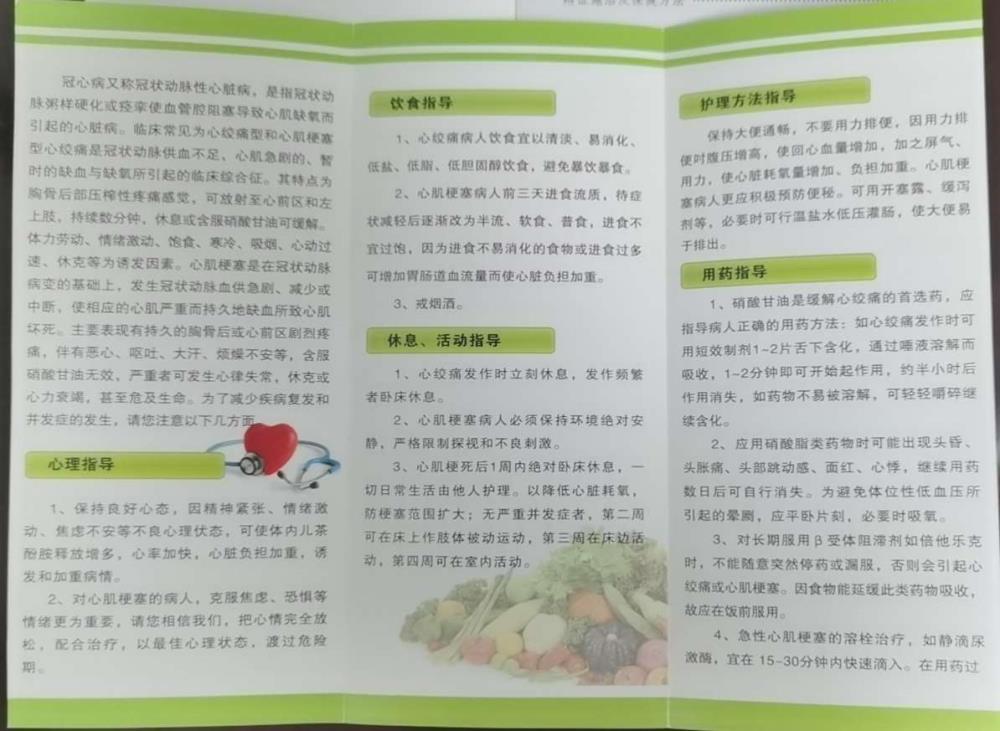 冠心病又称冠状动脉性心脏病，是指冠状动
脉粥样硬化或痉挛使血管腔阻塞导致心肌缺氧而
引起的心脏病。临床常见为心绞痛型和心肌梗塞
型心绞痛是冠状动脉供血不足，心肌急剧的、暂
时的缺血与缺氧所引起的临床综合征。其特点为
胸骨后部压榨性疼痛感觉，可放射至心前区和左
上肢，持续数分钟，休息或含服硝酸甘油可缓解。
体力劳动、情绪激动、饱食、寒冷、吸烟、心动过
速、休克等为诱发因素。心肌梗塞是在冠状动脉
病变的基础上，发生冠状动脉血供急剧、减少或
中断，使相应的心肌严重而持久地缺血所致心肌
坏死。主要表现有持久的胸骨后或心前区剧烈疼
痛，伴有恶心、呕吐、大汗、烦燥不安等，含服
硝酸甘油无效，严重者可发生心律失常，休克或
心力衰竭，甚至危及生命。为了减少疾病复发和
并发症的发生，请您注意以下几方面
心理指导
1、保持良好心态，因精神紧张、情绪激
动、焦虑不安等不良心理状态，可使体内儿茶
酚胺释放增多，心率加快，心脏负担加重，诱
发和加重病情。
2、对心肌梗塞的病人，克服焦虑、恐惧等
情绪更为重要，请您相信我们，把心情完全放
松，配合治疗，以最佳心理状态，渡过危险
期。
饮食指导
1、心绞痛病人饮食宜以清淡、易消化、
低盐、低脂、低胆固醇饮食，避免暴饮暴食。
2、心肌梗塞病人前三天进食流质，待症
状减轻后逐渐改为半流、软食、普食，进食不
宜过饱，因为进食不易消化的食物或进食过多
可增加胃肠道血流量而使心脏负担加重。
3、戒烟酒。
休息、活动指导
1、心绞痛发作时立刻休息，发作频繁
者卧床休息。
2、心肌梗塞病人必须保持环境绝对安
静，严格限制探视和不良刺激。
3、心肌梗死后1周内绝对卧床休息，一
切日常生活由他人护理。以降低心脏耗氧，
防梗塞范围扩大；无严重并发症者，第二周
可在床上作肢体被动运动，第三周在床边活
动，第四周可在室内活动。
护理方法指导
保持大便通畅，不要用力排便，因用力排
便时腹压增高，使回心血量增加，加之屏气、
用力，使心脏耗氧量增加、负担加重。心肌梗
塞病人更应积极预防便秘。可用开塞露、缓泻
剂等，必要时可行温盐水低压灌肠，使大便易
于排出。
用药指导
1、硝酸甘油是缓解心绞痛的首选药，应
指导病人正确的用药方法：如心绞痛发作时可
用短效制剂1~2片舌下含化，通过唾液溶解而
吸收，1~2分钟即可开始起作用，约半小时后
作用消失，如药物不易被溶解，可轻轻嚼碎继
续含化。
2、应用硝酸脂类药物时可能出现头昏、
头胀痛、头部跳动感、面红、心悸，继续用药
数日后可自行消失。为避免体位性低血压所
引起的晕厥，应平卧片刻，必要时吸氧。
3、对长期服用β受体阻滞剂如倍他乐克
时，不能随意突然停药或漏服，否则会引起心
绞痛或心肌梗塞。因食物能延缓此类药物吸收，
故应在饭前服用。
4、急性心肌梗塞的溶栓治疗，如静滴尿
激酶，宜在 15-30分钟内快速滴入。在用药过